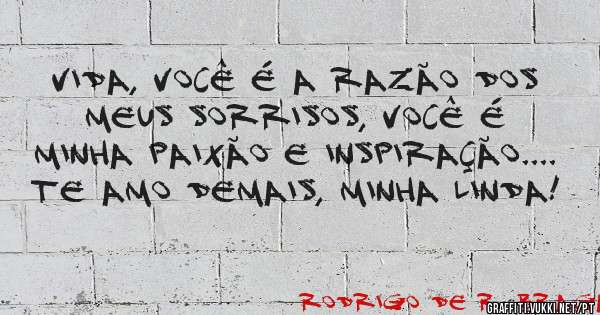 VIDA, VOCÊ É A RAZÃO DOS
MEUS SORRISOS, VOCÊ É
MINHA PAIXÃO E INSPIRAÇÃO....
TE AMO DEMAIS, MINHA LINDA!
RODRIGO DE
GRAFFITI.VUKKI.NET/PT